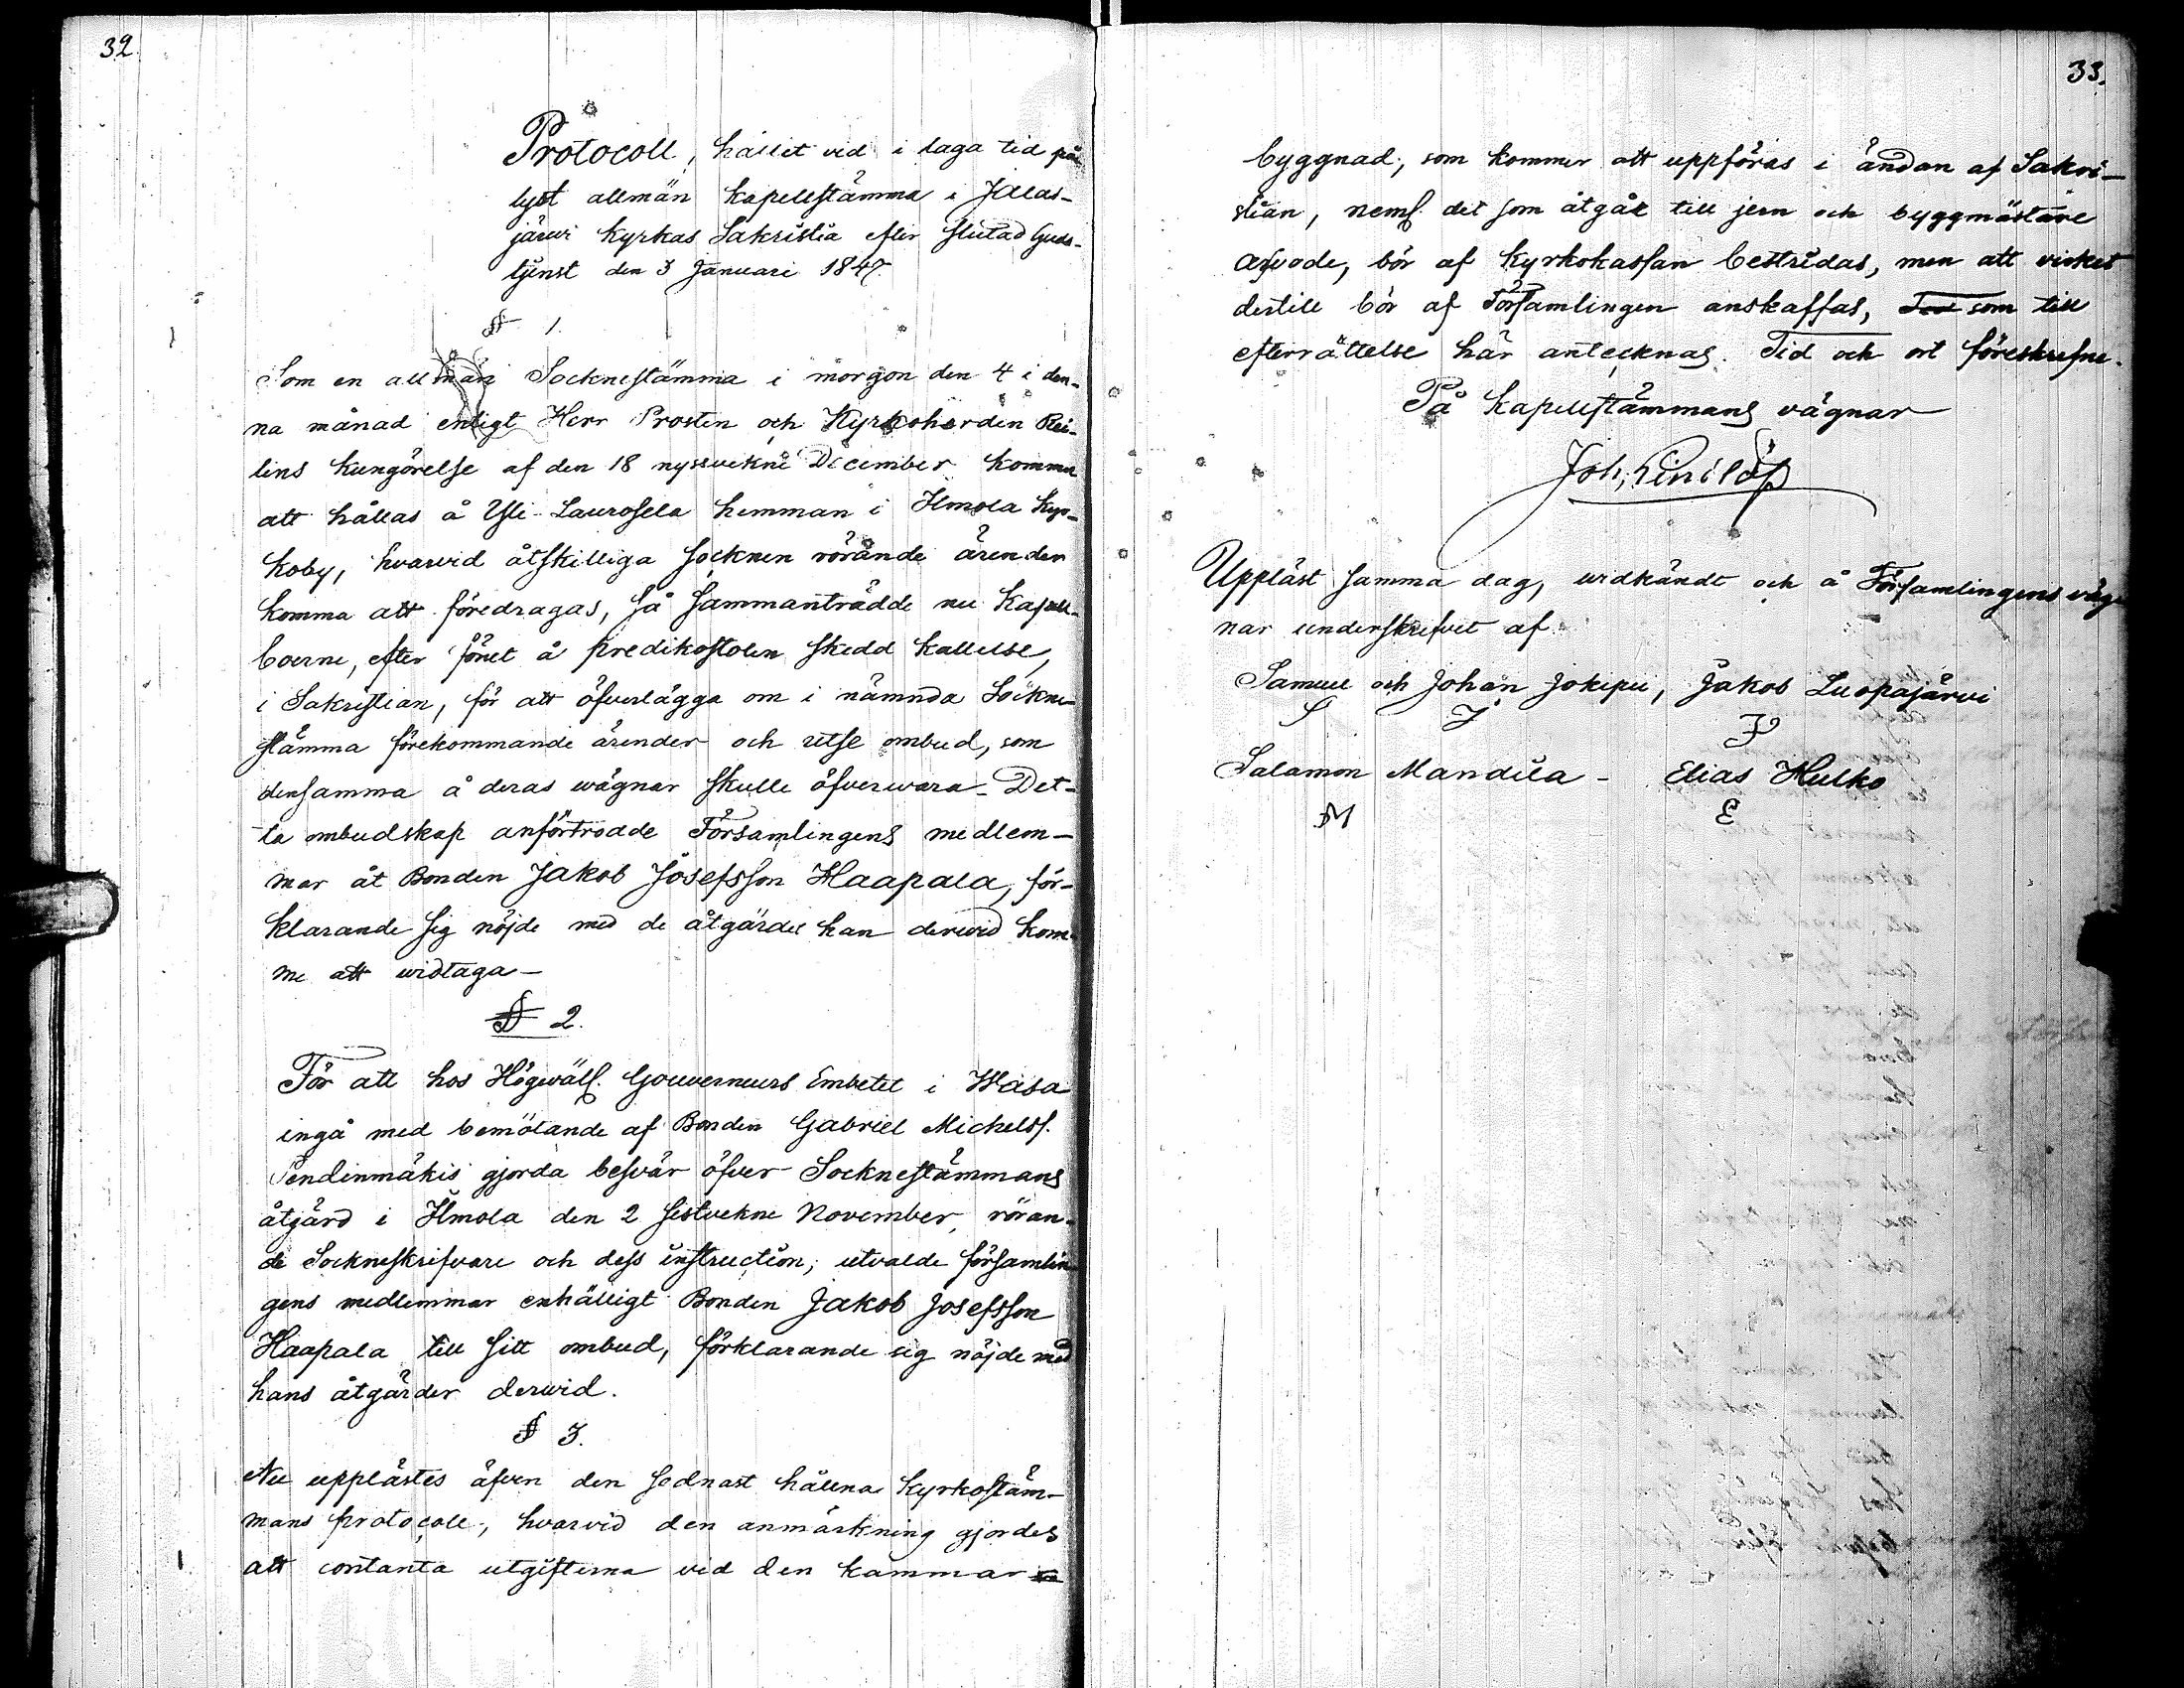 32.
Protocoll, hållet vid i laga tid på
lyst allmän Kapellstämma i Jalas-
järvi Kyrkas Sakristia efter slutad Guds-
tjenst den 3 Januari 1847.
§ 1.
Som en allmän Socknestämma i morgon den 4 i den-
na månad enligt Herr Prosten och Kyrkoherden Rei-
lins kungörelse af den 18 nyssvekne December komma
att hållas å Yli-Laurosela hemman i Ilmola Kyr-
koby, hvarvid åtskilliga socknen rörande ärender
komma att föredragas, så sammanträdde nu Kapell-
boerne, efter förut å predikostolen skedd kallelse,
i Sakristian, för att öfverlägga om i nämnda Sockne-
stämma förekommande ärender och utse ombud, som
densamma å deras wägnar skulle öfverwara - Det-
ta ombudskap anförtrodde Församlingens medlem-
mar åt Bonden Jakob Josefsson Haapala, för-
klarande sig nöjde med de åtgärder han dervid kom-
me att widtaga -
§ 2.
För att hos Högwäll. Gouverneurs Embetet i Wasa
ingå med bemötande af Bonden Gabriel Michelss.
Pendinmäkis gjorda besvär öfver Socknestämmans
åtgärd i Ilmola den 2 sistvekne November, röran-
de Sockneskrifvare och dess instruction; utvalde församlin
gens medlemmar enhälligt Bonden Jakob Josefsson
Haapala till sitt ombud, förklarande sig nöjde med
hans åtgärder derwid.
§ 3.
Nu upplästes äfven den sednast hållna Kyrkostäm-
mans protocoll, hvarvid den anmärkning gjordes
att contanta utgifterna vid den kammar
33.
byggnad, som kommer att uppföras i ändan af Sakri-
stian, neml. det som åtgår till jern och byggmästare
arfvode, bör af Kyrkokassan bestridas, men att virket
dertill bör af Församlingen anskaffas, som till
efterrättelse här antecknas. Tid och ort föreskrefne.
På Kapellstämmans vägnar
Joh.
Uppläst samma dag, widkändt och å Församlingens väg
nar underskrifvet af
Samuel och Johan Jokipii, Jakob Luopajärvi
S J J
Salamon Mandila - Elias Hulko
M E